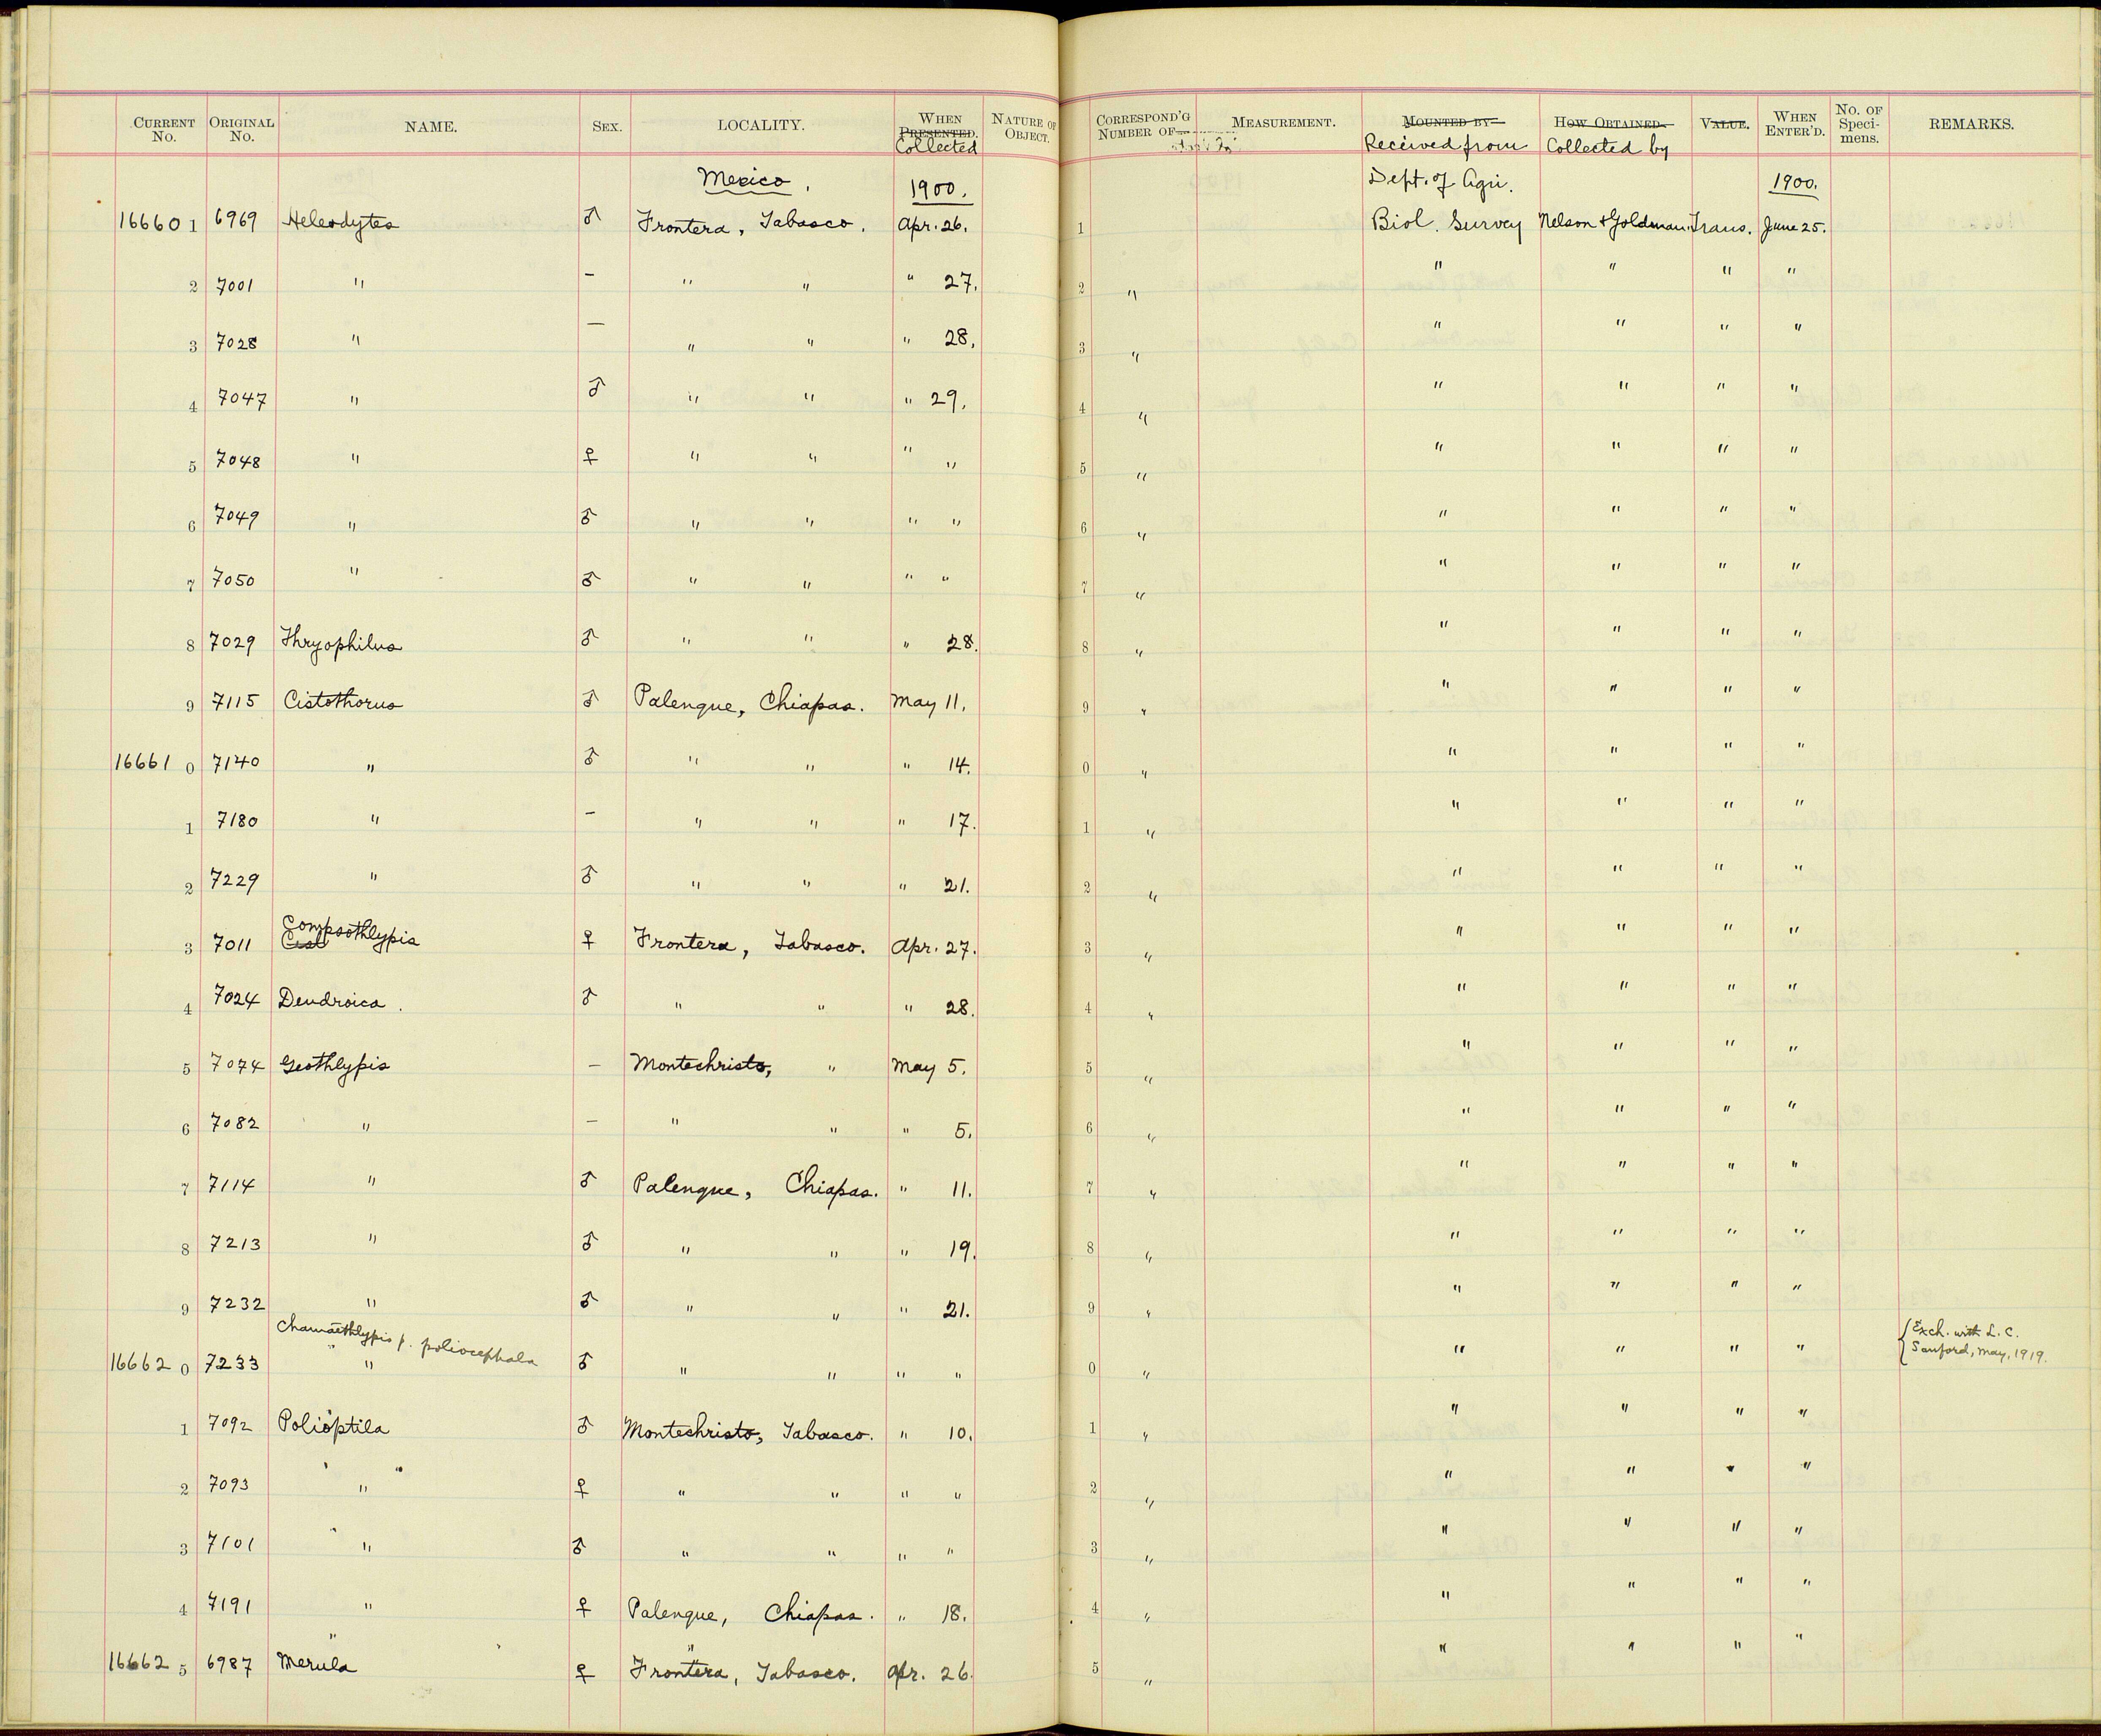 CURRENT No. ORIGINAL No. NAME. SEX. LOCALITY. WHEN PRESENTED. Collected NATURE OF OBJECT. CORRESPOND'G NUMBER OF MEASUREMENT. MOUNTED BY Received from HOW OBTAINED. Collected by VALUE. WHEN ENTER'D. No. OF Speci- mens. REMARKS.
Mexico. 1900. Dept. of Agri. 1900.
16660 1 6969 Heleodytes ♂ Frontera, Tabasco. Apr. 26. 1 Biol. Survey Nelson & Goldman. Trans. June 25.
2 7001 " – " " " 27. 2 " " " " "
3 7028 " – " " " 28. 3 " " " " "
4 7047 " ♂ " " " 29. 4 " " " " "
5 7048 " ♀ " " " " 5 " " " " "
6 7049 " ♂ " " " " 6 " " " " "
7 7050 " ♂ " " " " 7 " " " " "
8 7029 Thryophilus ♂ " " " 28. 8 " " " " "
9 7115 Cistothorus ♂ Palenque, Chiapas. May 11. 9 " " " " "
16661 0 7140 " ♂ " " " 14. 0 " " " " "
1 7180 " – " " " 17. 1 " " " " "
2 7229 " ♂ " " " 21. 2 " " " " "
3 7011 Cist Compsothlypis ♀ Frontera, Tabasco. Apr. 27. 3 " " " " "
4 7024 Dendroica. ♂ " " " 28. 4 " " " " "
5 7074 Geothlypis – Montechristo, " May 5. 5 " " " " "
6 7082 " – " " " 5. 6 " " " " "
7 7114 " ♂ Palenque, Chiapas. " 11. 7 " " " " "
8 7213 " ♂ " " " 19. 8 " " " " "
9 7232 " ♂ " " " 21. 9 " " " " "
Chamaethlypis p. poliocephala
16662 0 7233 " ♂ " " " " 0 " " " " " { Exch. with L. C. Sanford, May, 1919.
1 7092 Polioptila ♂ Montechristo, Tabasco. " 10. 1 " " " " "
2 7093 " ♀ " " " " 2 " " " " "
3 7101 " ♂ " " " " 3 " " " " "
4 7191 " ♀ Palenque, Chiapas. " 18. 4 " " " " "
16662 5 6987 Merula ♀ Frontera, Tabasco. Apr. 26. 5 " " " " "